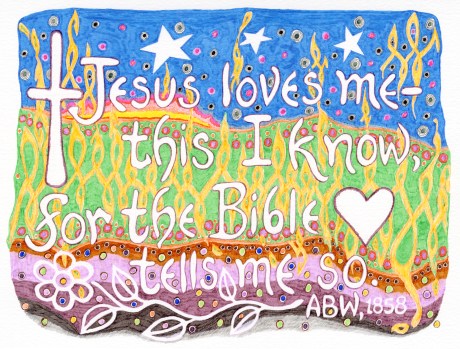 Jesus loves me-
this I know,
for the Bible
tells me so.
ABW, 1858